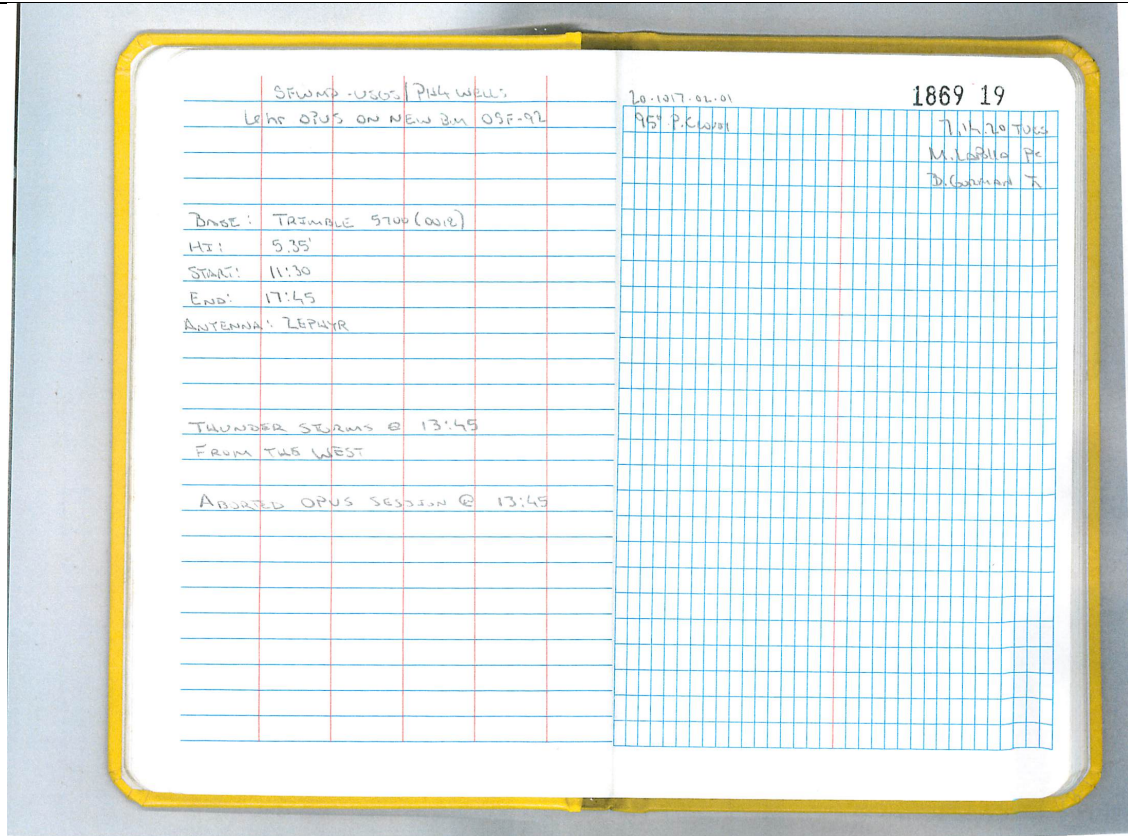 SFWMD - USGS / PH4 WELLS
6 hr OPUS ON NEW BM OSF-92
BASE: TRIMBLE 5700 (0012)
HI: 5.35'
START: 11:30
END: 17:45
ANTENNA: ZEPHYR
THUNDER STORMS @ 13:45
FROM THE WEST
ABORTED OPUS SESSION @ 13:45
20-1017.02.01
1869 19
95° P.Cloudy
7.14.20 TUES
M. LaPolla PC
D. GUZMAN